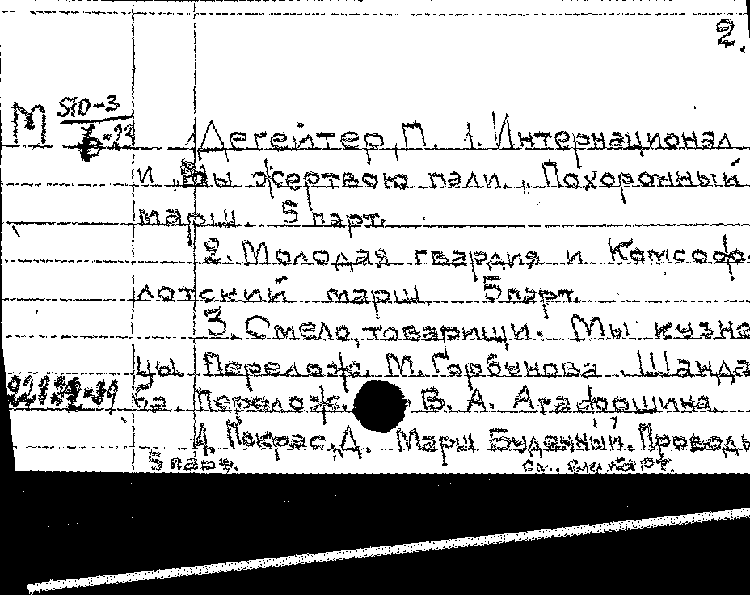 2.
М 510-3
Дегейтер, П. 1. Интернационал
и „Вы жертвою пали.„ Похоронный
марш. 5 парт.
2. Молодая гвардия и Комсофо-
лотский марш 5 парт.
3. Смело, товарищи. Мы кузне
цы Перелож. М. Горбунова. Шанда
22832-39 ба. Перелож. В. А. Агафошина.
4. Покрас, Д. Марш Буденный. Проводы
5 парт. см. след. карт.